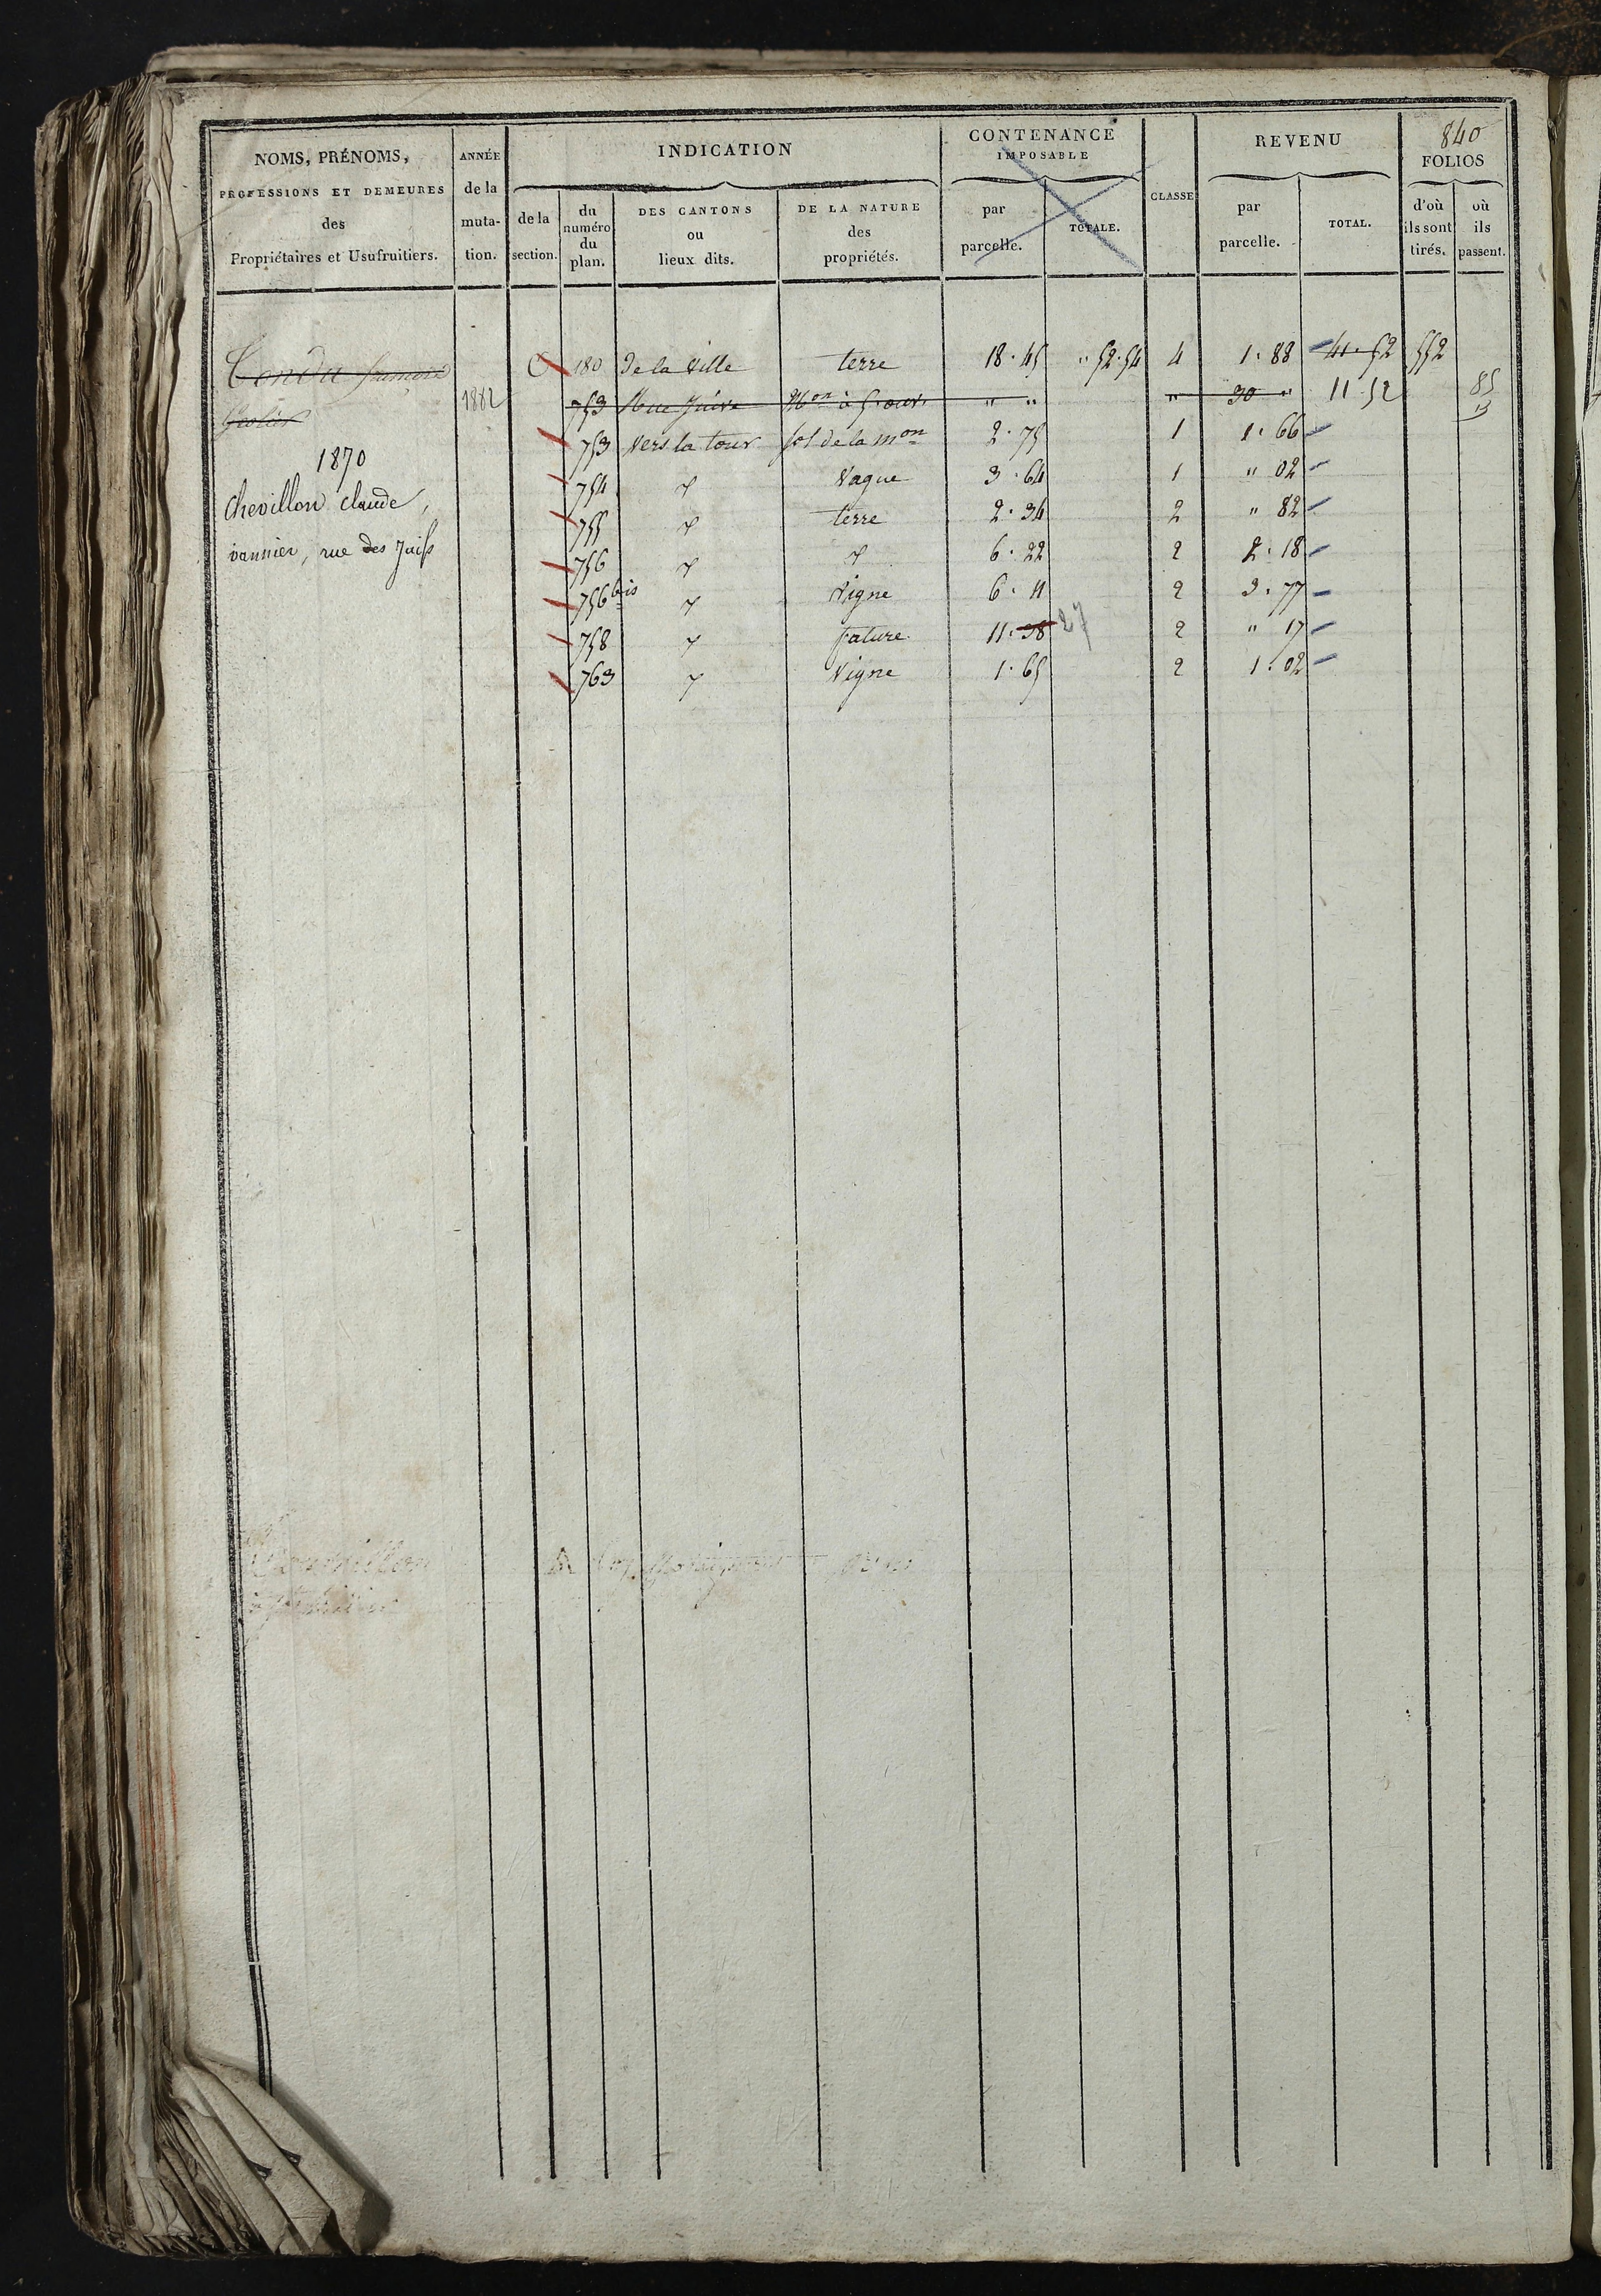 840
NOMS, PRÉNOMS,
PROFESSIONS ET DEMEURES
des
Propriétaires et Usufruitiers.
ANNÉE
de la
muta-
tion.
INDICATION
de la
section.
du
numéro
du
plan.
DES CANTONS
ou
lieux dits.
DE LA NATURE
des
propriétés.
CONTENANCE
IMPOSABLE
par
parcelle.
TOTALE.
CLASSE
REVENU
par
parcelle.
TOTAL.
FOLIOS
d'où
ils sont
tirés.
où
ils
passent.
180 de la Ville terre 18.45 " 52.54 4 1.88 41.52 552
1882 753 Rue Juive Mon à " " " 30 " 11.52 85
753 Vers la tour sol de la mon 2.75 1 1.66
754 Vague 3.64 1 " 02
755 terre 2.34 2 " 82
756 6.22 2 2.18
756 bis Vigne 6.11 2 3.77
758 Pature 11.38 27 2 " 17
763 Vigne 1.65 2 1.02
1870
Chevillon Claude,
vannier, rue des Juifs